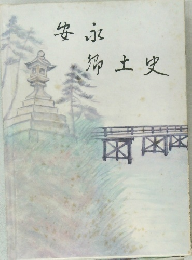 安永
郷土史